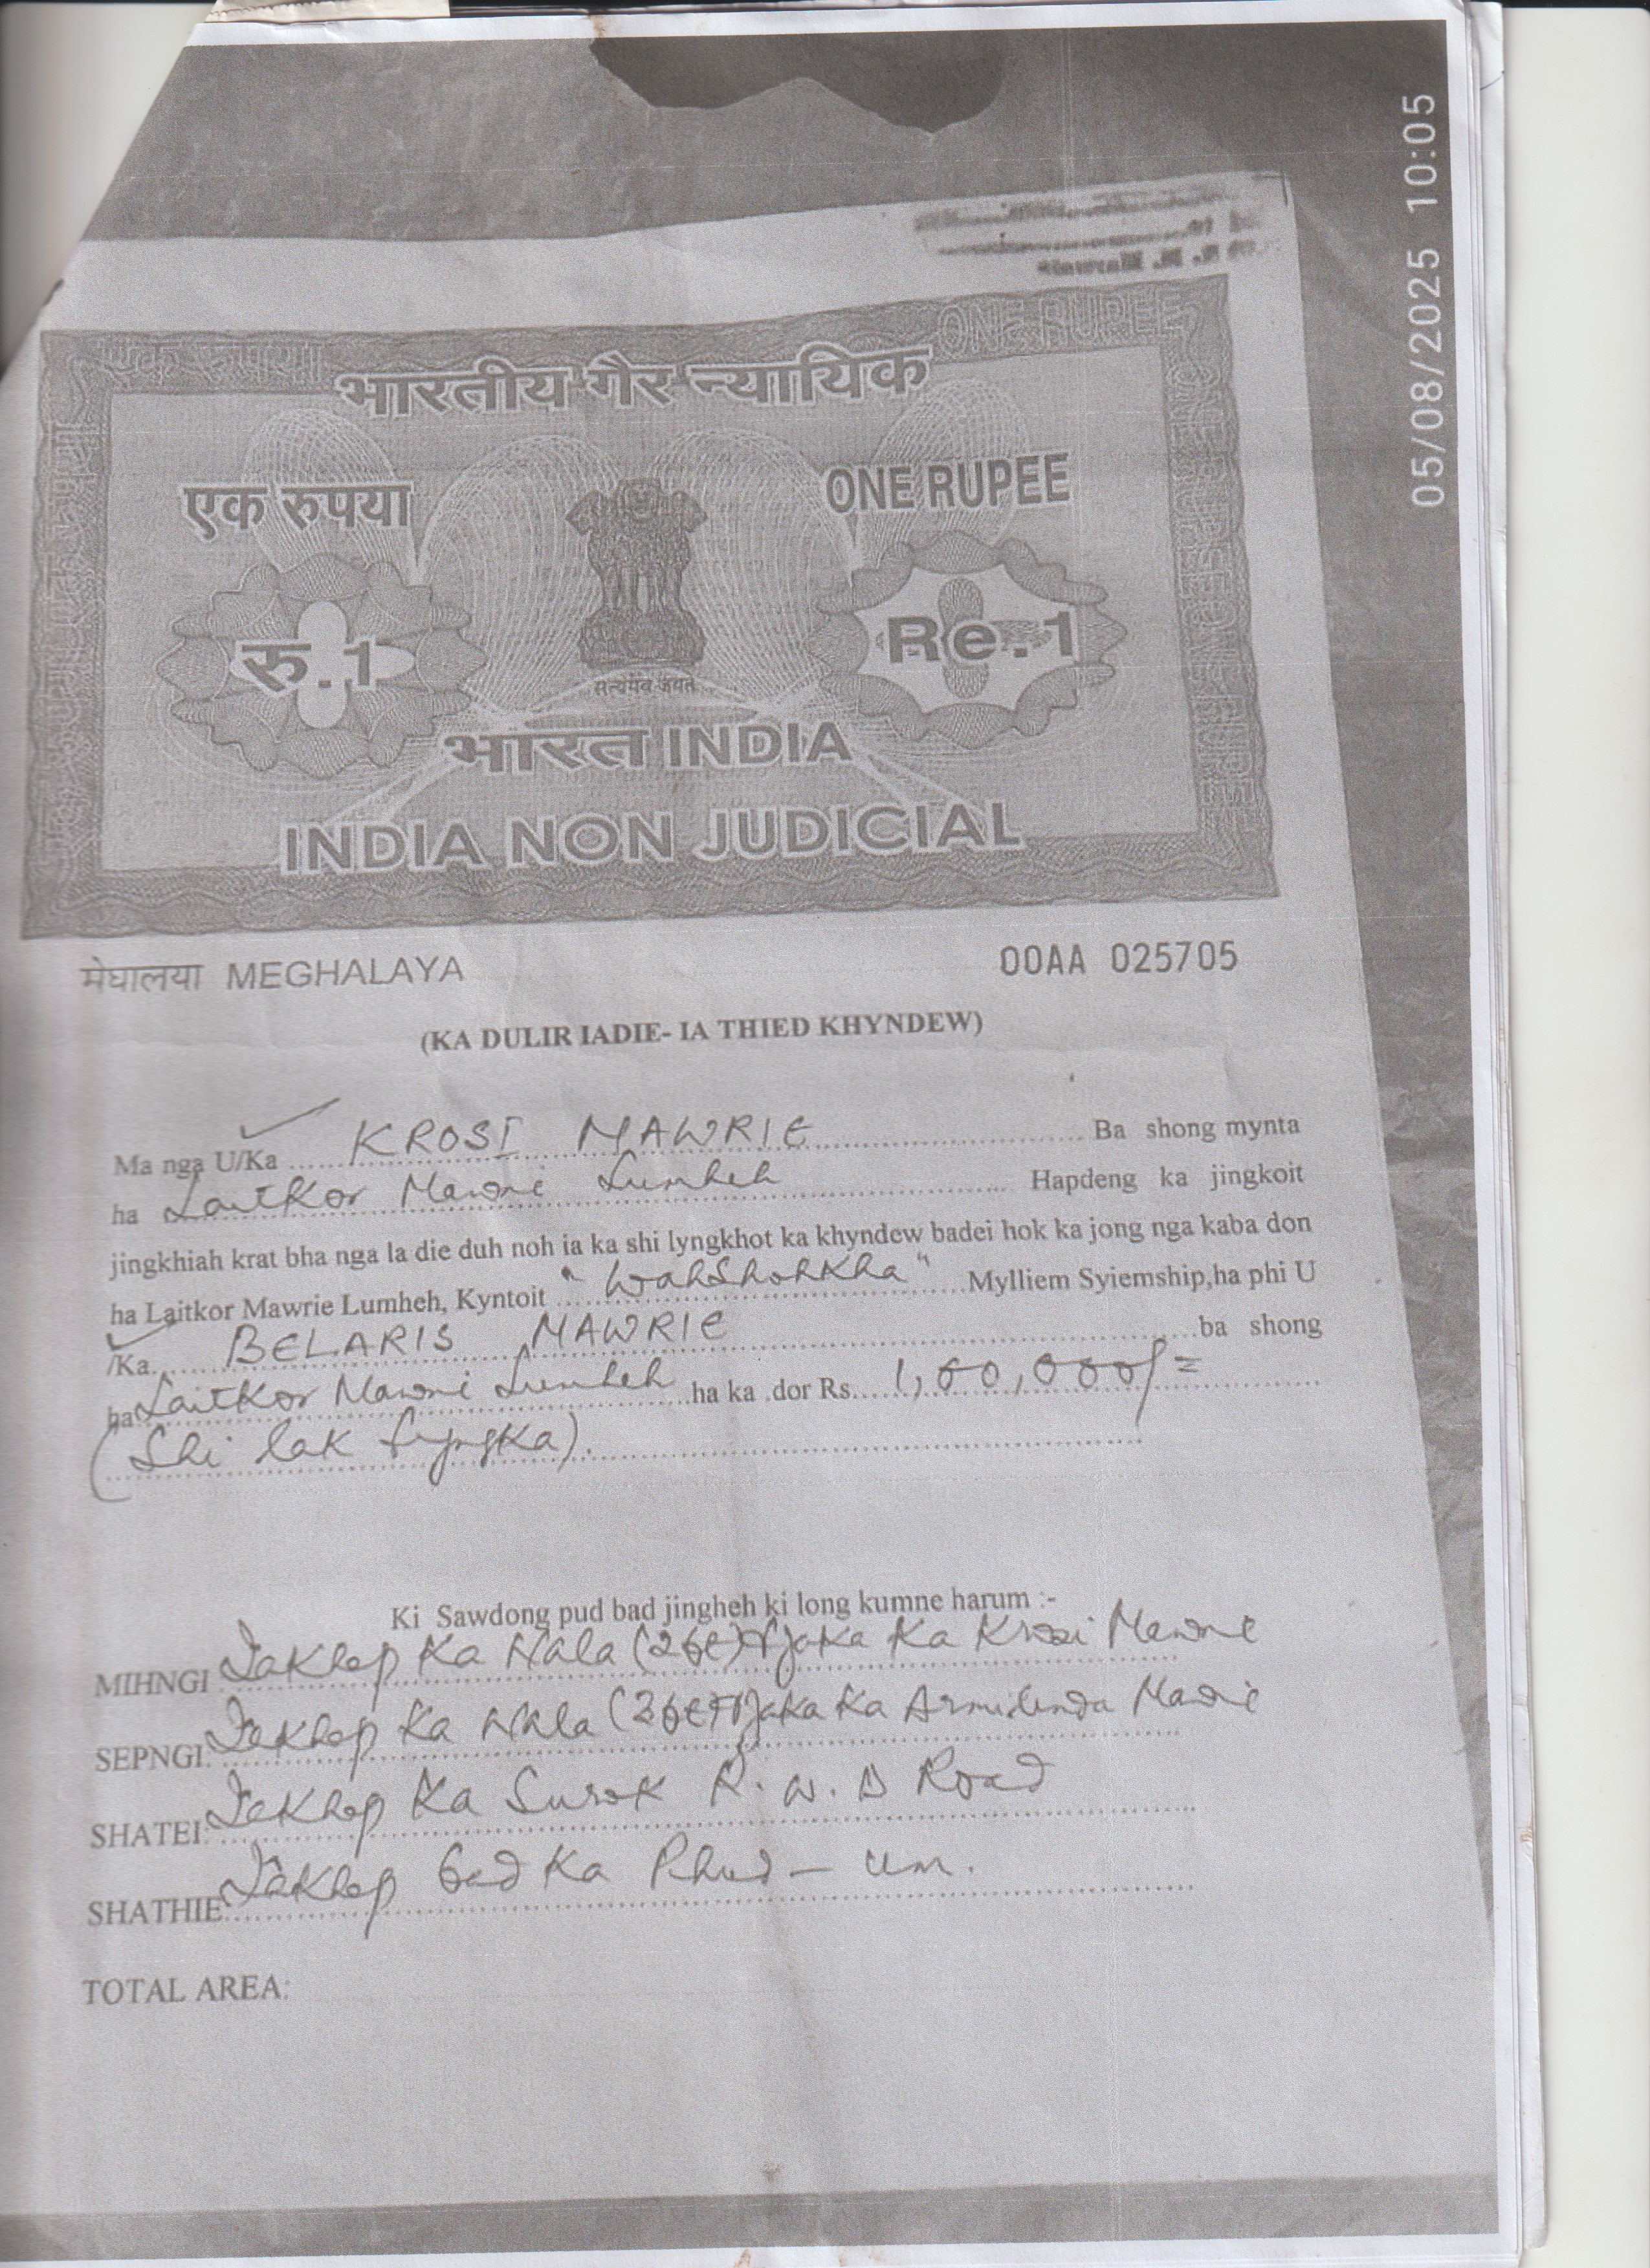 05/08/2025 10:05
एक रुपया ONE RUPEE
भारतीय गैर न्यायिक
एक रुपया ONE RUPEE
रु.1 Re.1
सत्यमेव जयते
भारत INDIA
INDIA NON JUDICIAL
मेघालया MEGHALAYA 00AA 025705
(KA DULIR IADIE- IA THIED KHYNDEW)
Ma nga U/Ka KROSI MAWRIE Ba shong mynta
ha Laitkor Mawrie Lumheh Hapdeng ka jingkoit
jingkhiah krat bha nga la die duh noh ia ka shi lyngkhot ka khyndew badei hok ka jong nga kaba don
ha Laitkor Mawrie Lumheh, Kyntoit "WahShohKha" Mylliem Syiemship,ha phi U
/Ka BELARIS MAWRIE ba shong
ha Laitkor Mawrie Lumheh ha ka .dor Rs. 1,00,000/=
(Shi lak tyngka).
Ki Sawdong pud bad jingheh ki long kumne harum :-
MIHNGI Iakhap Ka Nala (2 jaka Ka Krosi Mawrie
SEPNGI: Iakhap Ka Nala jaka Ka Armilinda Mawrie
SHATEI: Iakhap Ka Surok P.W.D Road
SHATHIE Iakhap bad Ka Phud - Um.
TOTAL AREA: